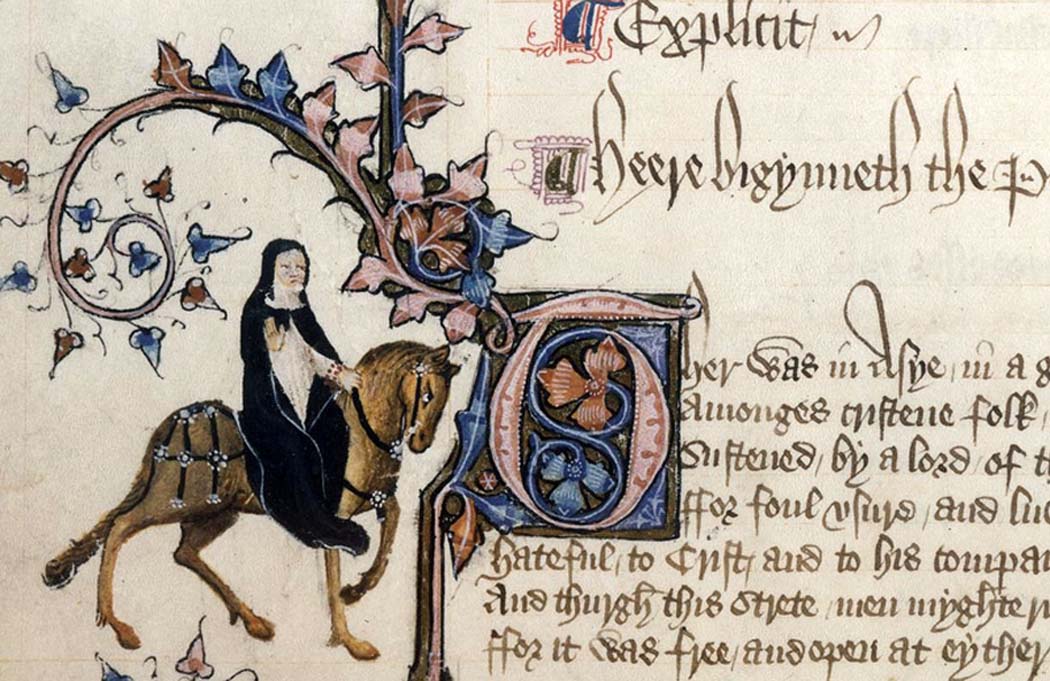 ¶ Explicit
¶ Heere bigynneth the P
Ther was in Asye, in a g
Amonges cristene folk,
Sustened, by a lord, of t
ffor foul vsure, and luc
hateful, to Crist, and to his compai
And thurgh this Strete, men myghte ri
ffor it was free, and open at eyther